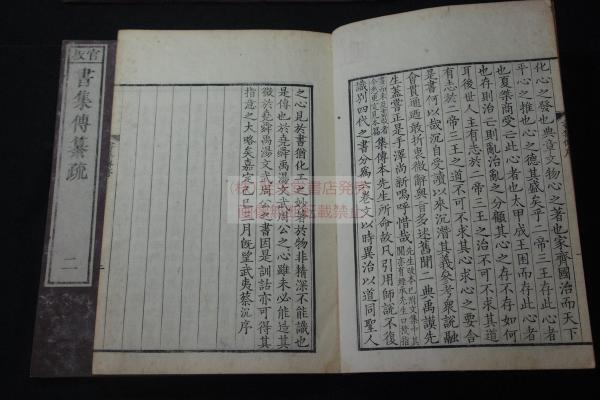 官板
書集傳纂疏
二
化心之發也典章文物心之著也家齊國治而天下
平心之推也心之德其盛矣乎二帝三王存此心者
也夏桀商受亡此心者也太甲成王困而存此心者
也存則治亡則亂治亂之分顧其心之存不存如何
耳後世人主有志於二帝三王之治不可不求其道
有志於二帝三王之道不可不求其心求心之要舍
是書何以哉沉自受讀以來沉潛其義參考衆說融
會貫通廼敢折衷微辭奧旨多述舊聞二典禹謨先
生蓋嘗正是手澤尚新嗚呼惜哉
集傳本先生所命故凡引用師說不復
識別四代之書分爲六卷文以時異治以道同聖人
之心見於書猶化工之妙著於物非精深不能識也
是傳也於堯舜禹湯文武周公之心雖未必能造其
微於堯舜禹湯文武周公之書因是訓詁亦可得其
指意之大略矣嘉定己巳三月既望武夷蔡沉序